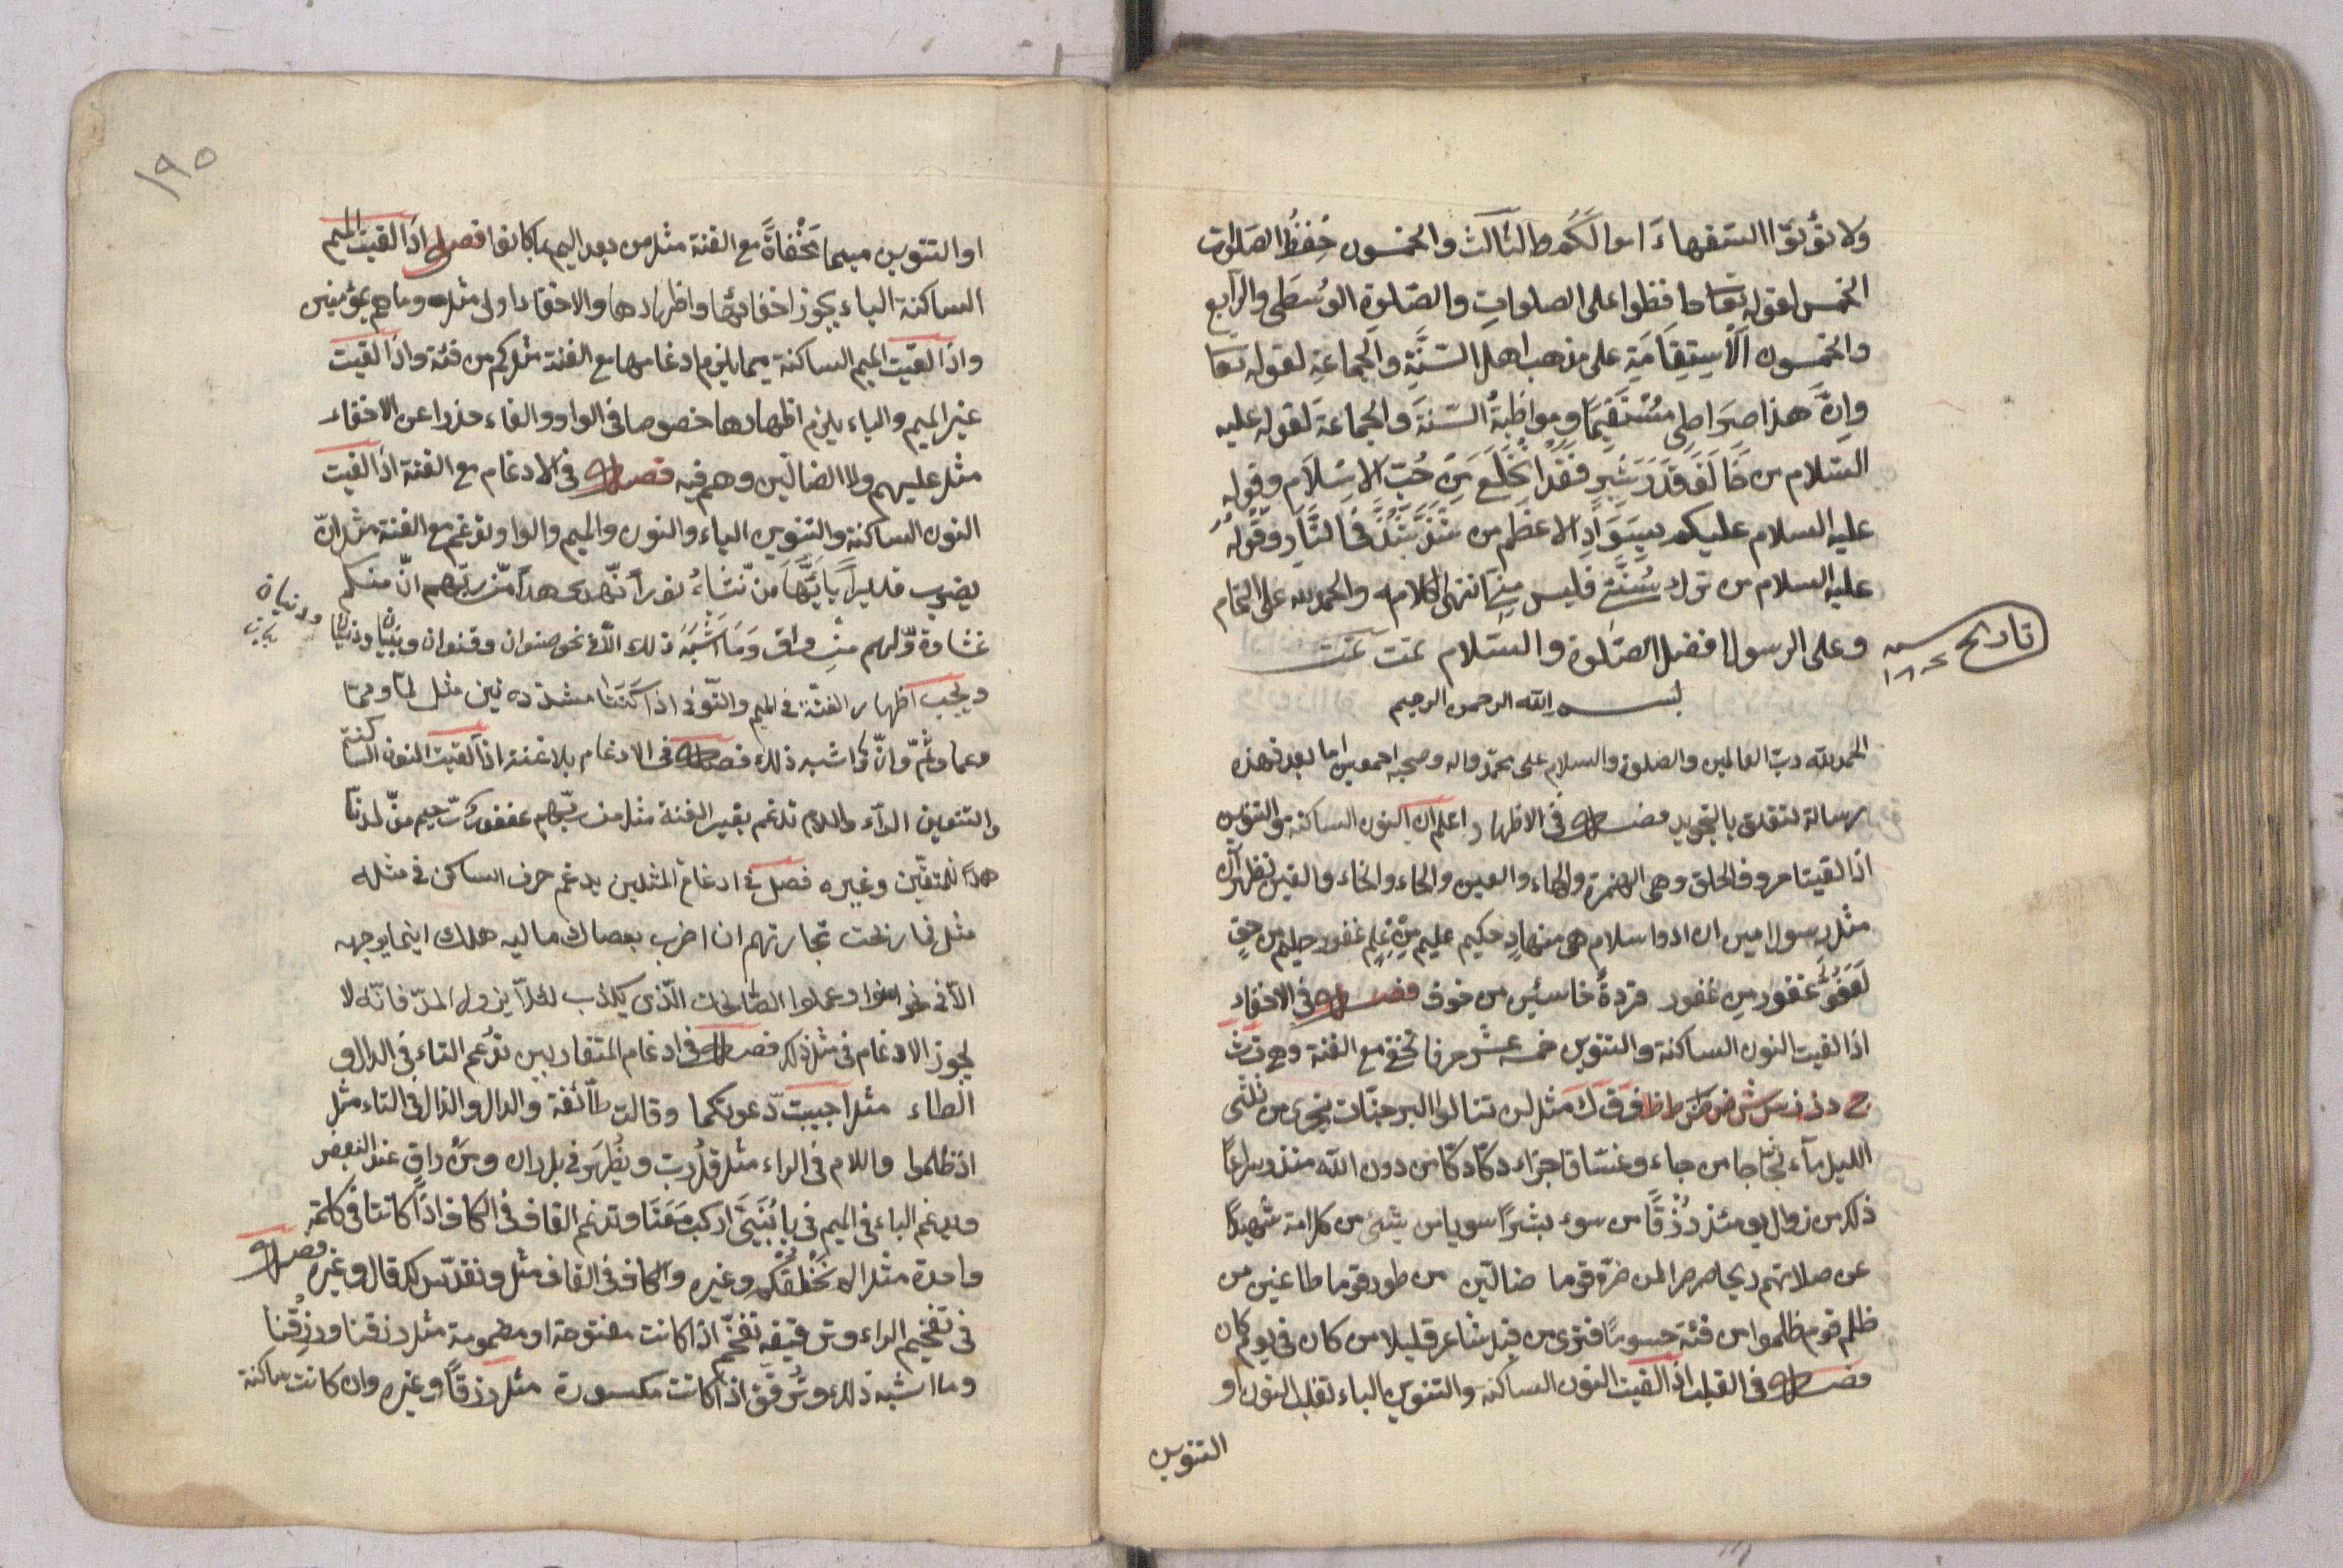 ولا تؤتوا السفهاء اموالكم والثالث والخمسون حفظ الصلوات
الخمس لقوله تعا حافظوا على الصلوات والصلوة الوسطى والرابع
والخمسون الاستقامة على مذهب اهل السنة والجماعة لقوله تعا
وان هذا صراطى مستقيما ومواظبة السنة والجماعة لقوله عليه
السلام من خالف قدر شبر فقد انخلع من الاسلام وقوله
عليه السلام عليكم بسواد الاعظم من شذ شذ فى النار وقوله
عليه السلام من ترك سنتى فليس منى انتهى الكلام والحمد لله على التمام
وعلى الرسول افضل الصلوة والسلام تمت تمت
تاريخ سنه
بسم الله الرحمن الرحيم
الحمد لله رب العالمين والصلوة والسلام على محمد واله وصحبه اجمعين اما بعد فهذه
رسالة تتعلق بالتجويد فصل فى الاظهار اعلم ان النون الساكنة والتنوين
اذا لقيتا حروف الحلق وهى الهمزة والهاء والعين والحاء والخاء والغين تظهران
مثل رسول امين ان ادوا سلام هى منها حكيم عليم من غفور حليم من حق
لعفو غفور من غفور قردة خاسئين من خوف فصل فى الاخفاء
اذا لقيت النون الساكنة والتنوين خمسة عشر حرفا تخفى مع الغنة وهى ت ث
ج د ذ ز س ش ص ض ط ظ ف ق ك مثل لن تنالوا البر جنات تجرى من ثلثى
الليل ماء ثجاجا من جاء وغساقا جزاء دكا دكا من دون الله منذر سراعا
ذلك من زوال يومئذ زرقا من سوء بشرا سويا من شئ من كل امة شهيدا
عن صلاتهم ريحا صرصرا لمن ضره قوما ضالين من طور قوما طاغين من
ظلم قوم ظلموا من فئة حسوما فترى من قبل شاعر قليلا من كان فى يوم كان
فصل فى القلب اذا لقيت النون الساكنة والتنوين الباء تقلب النون او
التنوين
١٩٥
او التنوين ميما مخفاة مع الغنة مثل من بعد اليم بما كانوا فصل اذا لقيت الميم
الساكنة الباء يجوز اخفائها واظهارها والاخفاء اولى مثل وما هم بمؤمنين
واذا لقيت الميم الساكنة ميما يلزم ادغامها مع الغنة مثل كم من فئة واذا لقيت
غير الميم والباء يلزم اظهارها خصوصا فى الواو والفاء حذرا عن الاخفاء
مثل عليهم ولا الضالين وهم فيه فصل فى الادغام مع الغنة اذا لقيت
النون الساكنة والتنوين الياء والنون والميم والواو تدغم مع الغنة مثل ان
يضرب من نشاء هدى من ربهم ان منكم
غشاوة ولهم من واق وما اشبه ذلك الا فى نحو صنوان وقنوان وبنيان ودنيا
ويجب اظهار الغنة فى الميم والنون اذا كانتا مشددتين مثل لما ومما
وعما وثم وان وما اشبه ذلك فصل فى الادغام بلا غنة اذا لقيت النون الساكنة
والتنوين الراء واللام تدغم بغير الغنة مثل من ربهم غفور رحيم من لدنا
هدى للمتقين وغيره فصل فى ادغام المثلين يدغم حرف الساكن فى مثله
مثل فما ربحت تجارتهم ان اضرب بعصاك ماليه هلك اينما يوجهه
الا فى نحو امنوا وعملوا الصالحات الذى يكذب لئلا يزول المد فانه لا
يجوز الادغام فى مثل ذلك فصل فى ادغام المتقاربين تدغم التاء فى الدال و
الطاء مثل اجيبت دعوتكما وقالت طائفة والدال والذال فى التاء مثل
اذ ظلموا واللام فى الراء مثل قل رب ويظهر فى بل ران ومن راق عند البعض
ويدغم الباء فى الميم فى يا بنى اركب معنا وتدغم القاف فى الكاف اذا كانتا فى كلمة
واحدة مثل الم نخلقكم وغيره والكاف فى القاف مثل ونقدس لك قال وغيره فصل
فى تفخيم الراء وترقيقه تفخم اذا كانت مفتوحة او مضمومة مثل رزقنا ورزقنا
وما اشبه ذلك وترقق اذا كانت مكسورة مثل رزقا وغيره وان كانت ساكنة